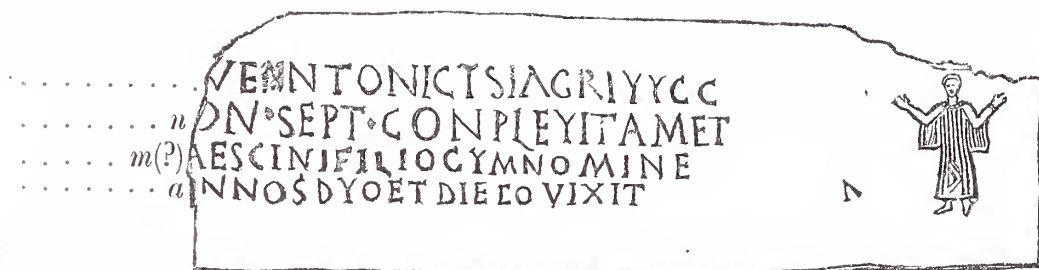 VENNTONICTSIAGRIYYCC
n ON•SEPT•CONPLEYITAMET
m(?) AESCINIFILIOCYMNOMINE
a NNOS DYOET DIE LO VIXIT
Λ